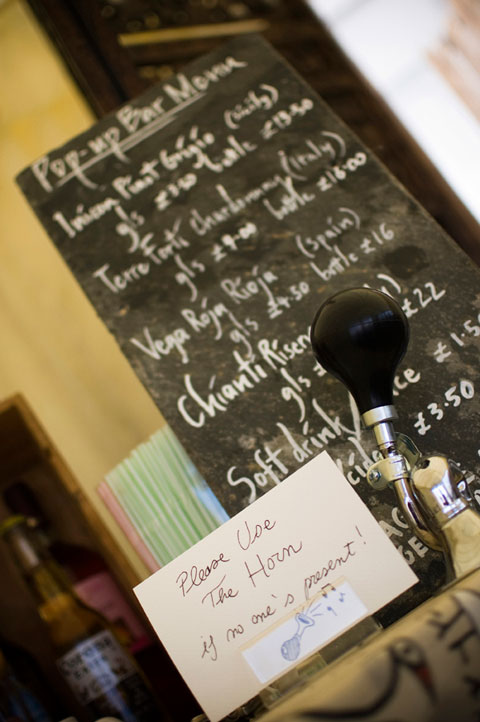 Pop-up Bar Menu
Pinot Grigio
gls £3.50 bottle £13.50
Terre Forti Chardonnay (Italy)
gls £4.00 bottle £16.00
Vega Roja Rioja (Spain)
gls £4.50 bottle £16
Chianti
gls £22
Soft drink £1.50
£3.50
Please Use
The Horn
if no one's present!